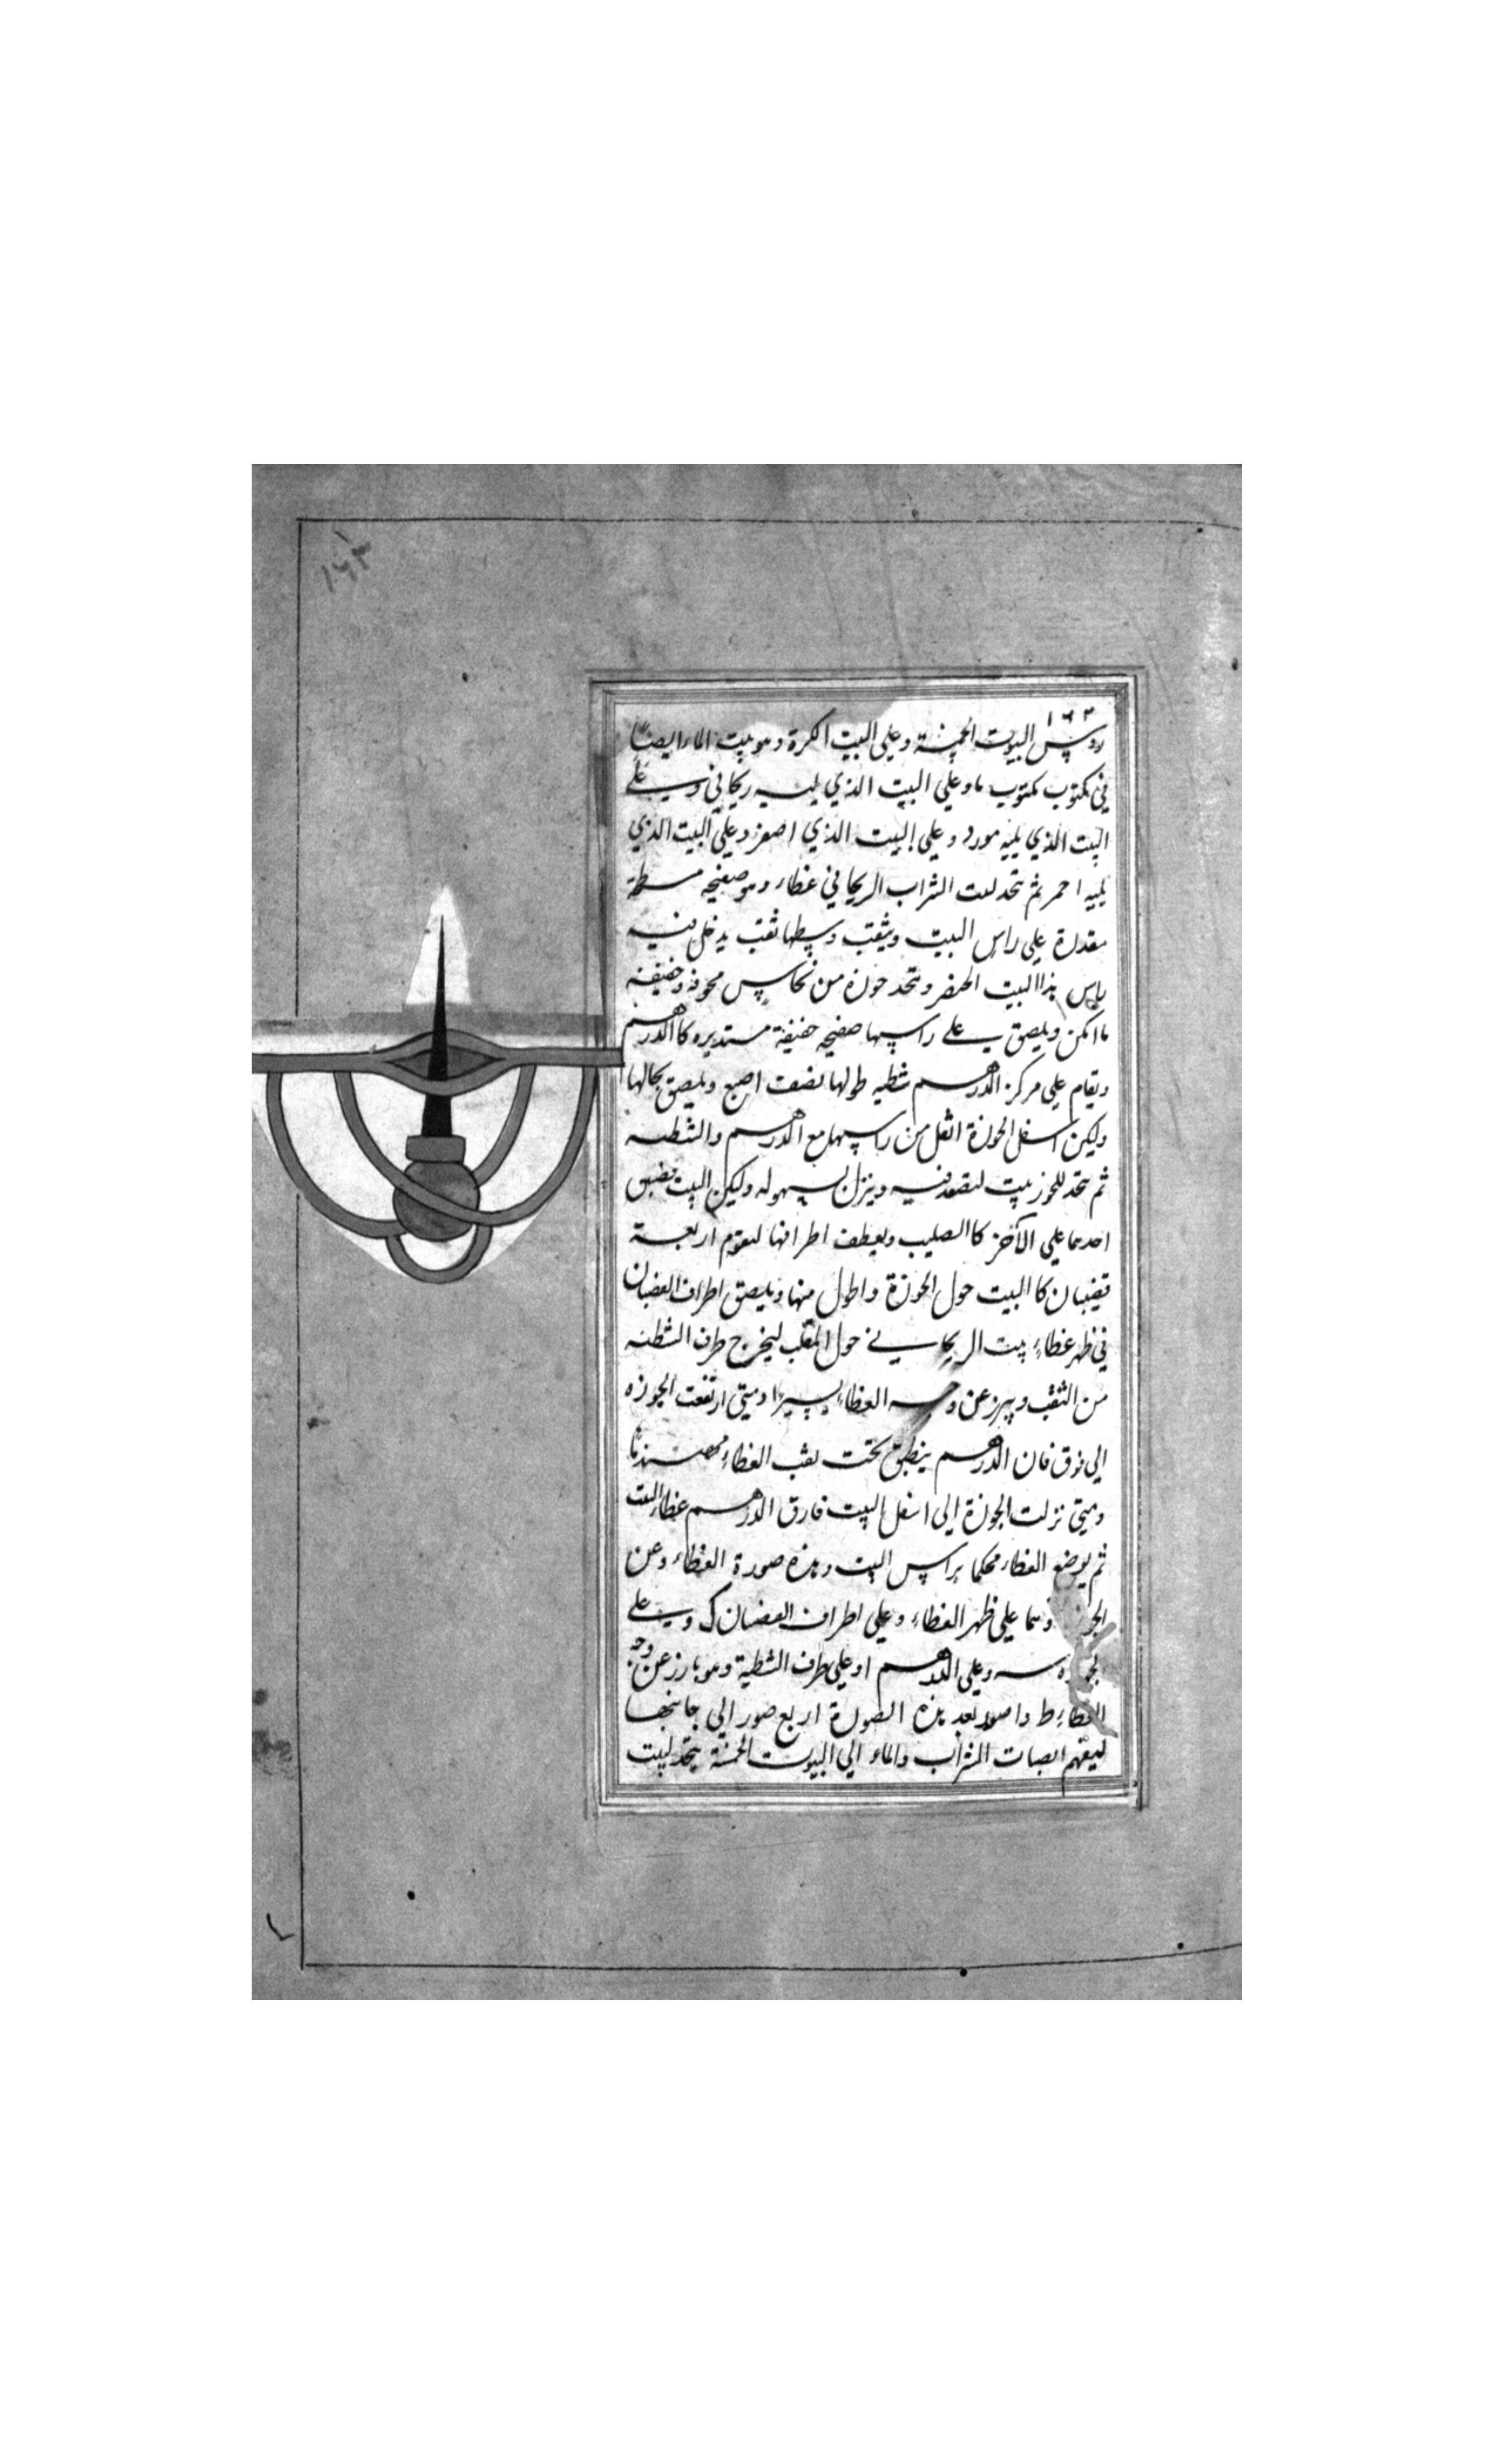 ١٦٣
١٦٣
روس البيوت الخمسة وعلي البيت الكرة وهو بيت الماء ايضا
في مكتوب مكتوب ماء وعلي البيت الذي يليه ريحاني وعلى
البيت الذي يليه مورد وعلي البيت الذي اصفر وعلي البيت الذي
يليه احمر ثم تتخذ لبيت الشراب الريحاني غطاء وهو صفيحه مسطحة
مقدرة علي راس البيت ويثقب وسطها ثقب يدخل فيه
راس هذا البيت ويتخذ جوزة من نحاس مجوفة وخفيفة
ما امكن ويلصق على راسها صفيحه خفيفة مستديره كالدرهم
ويقام علي مركز الدرهم شظيه طولها نصف اصبع ويلصق بحالها
وليكن اسفل الجوزة اثقل من راسها مع الدرهم والشظية
ثم يتخذ للجوز بيت لتصعد فيه وينزل بسهوله وليكن البيت
احدهما علي الآخر كالصليب ويعطف اطرافها ليقوم اربعة
قضبان كالبيت حول الجوزة واطول منها ويلصق اطراف القضبان
في ظهر غطاء بيت الريحاني حول الثقب ليخرج طرف الشظية
من الثقب ويبرز عن وجه الغطاء يسيرا ومتي ارتفعت الجوزه
الي فوق فان الدرهم ينطبق تحت ثقب الغطاء
ومتي نزلت الجوزة الي اسفل البيت فارق الدرهم غطاء البيت
ثم يوضع الغطاء محكما براس البيت وهذه صورة الغطاء وعن
علي ظهر الغطاء وعلي اطراف القضبان ك وعلى
سه وعلي الدرهم او علي طرف الشظية وهو بارز عن وجه
الغطاء ط واصور بعد هذه الصورة اربع صور الي جانبها
ليفهم انصباب الشراب والماء الي البيوت الخمسة يتخذ لبيت